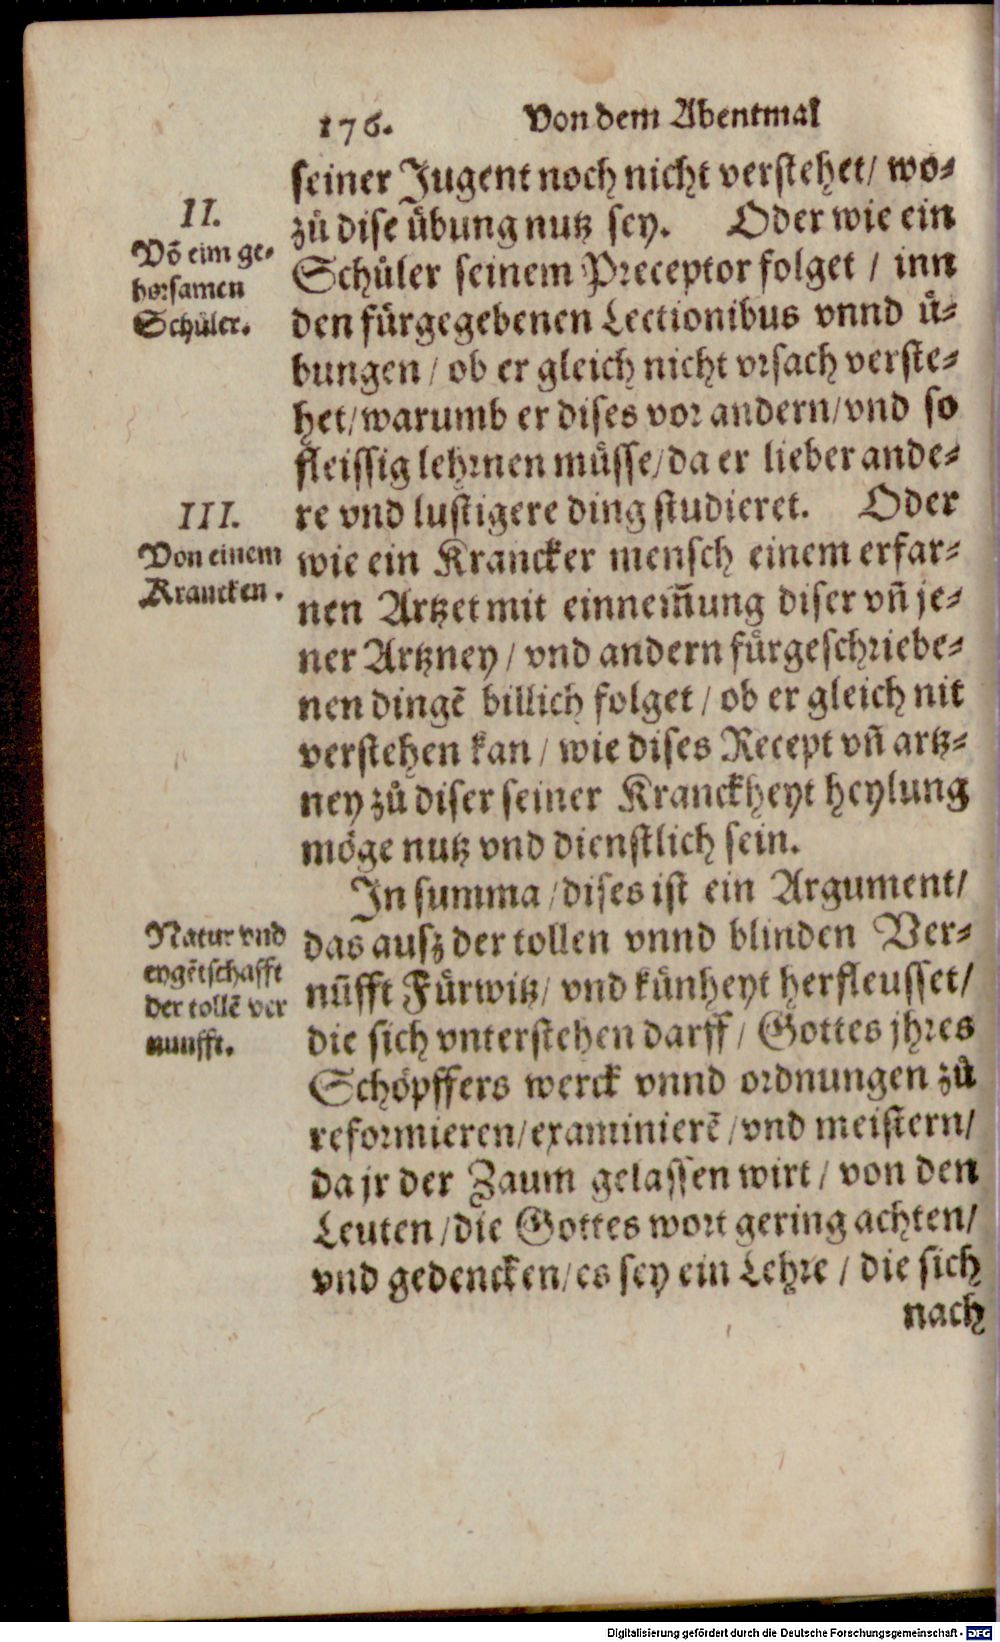 176. Von dem Abentmal
seiner Jugent noch nicht verstehet/ wo⸗
zů dise übung nutz sey. Oder wie ein
Schůler seinem Preceptor folget / inn
den fürgegebenen Lectionibus vnnd ü⸗
bungen / ob er gleich nicht vrsach verste⸗
het/ warumb er dises vor andern/ vnd so
fleissig lehrnen müsse/ da er lieber ande⸗
re vnd lustigere ding studieret. Oder
wie ein Krancker mensch einem erfar⸗
nen Artzet mit einnem̃ung diser vn̄ je⸗
ner Artzney / vnd andern fürgeschriebe⸗
nen dingē billich folget / ob er gleich nit
verstehen kan / wie dises Recept vn̄ artz⸗
ney zů diser seiner Kranckheyt heylung
möge nutz vnd dienstlich sein.
In summa / dises ist ein Argument/
das ausz der tollen vnnd blinden Ver⸗
nũfft Fürwitz/ vnd künheyt herfleusset/
die sich vnterstehen darff / Gottes jhres
Schöpffers werck vnnd ordnungen zů
reformieren/ examinierē / vnd meistern/
da jr der Zaum gelassen wirt / von den
Leuten / die Gottes wort gering achten/
vnd gedencken/ es sey ein Lehre / die sich
nach
II.
Võ eim ge⸗
horsamen
Schůler.
III.
Von einem
Krancken.
Natur vnd
eygētschafft
der tollē ver
nunfft.
Digitalisierung gefördert durch die Deutsche Forschungsgemeinschaft - DFG